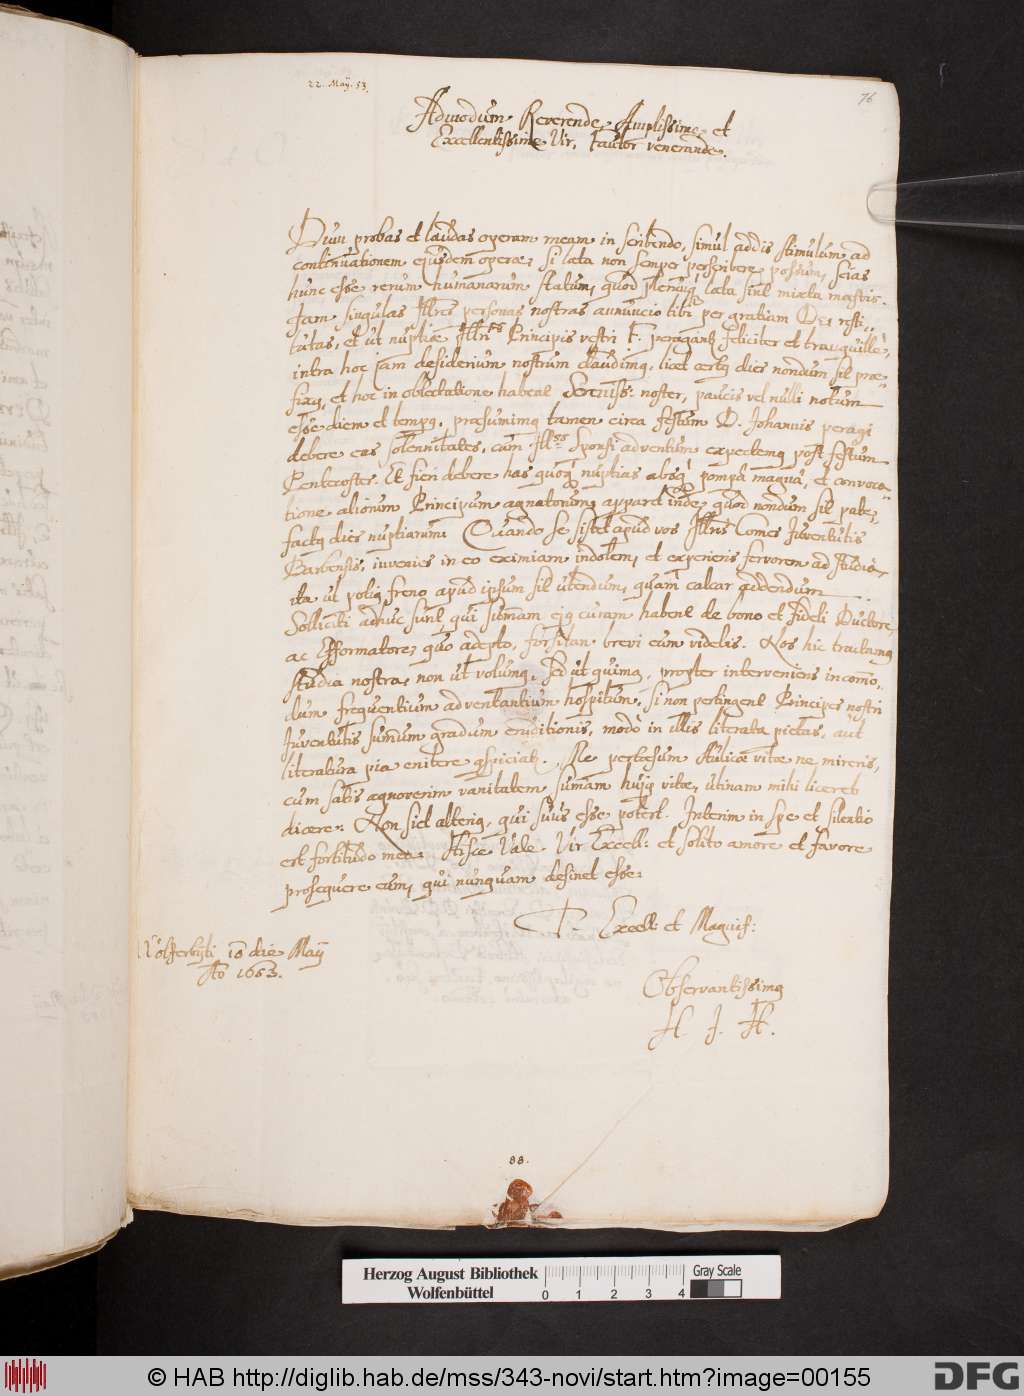 22. Maÿ. 53.
76
Admodum Reverende, Amplissime, et
Excellentissime Vir, Fautor venerande.
Dum probas et laudas operam meam in scribendo, simul addis stimulum ad
continuationem ejusdem operæ; si læta non semper perscribere possum, scias
hunc esse rerum humanarum statum, quod plerumq læta sint mixta mæstis.
Jam singulas Illres personas nostras annuncio tibi per gratiam Dei resti„
tutas, et ut nuptiæ Illmæ Principis vestri F. peragantr feliciter et tranquillè,
intra hoc jam desiderium nostrum claudimq, licet certq dies nondum sit præ„
fixq, et hoc in oblectatione habeat Sereniss: noster, paucis vel nulli notum
esse diem et tempq, præsumimq tamen circa festum D. Johannis peragi
debere eas solennitates, cum Sponsi adventum expectemq post festum
Pentecostes. Et fieri debere has quoq nuptias absq pompâ magnâ, et convoca„
tione aliorum Principum agnatorum, apparet inde, quod nondum sit pate„
factq dies nuptiarum. Quando se sistet apud vos Illris Comes Juventutis
Barbensis, invenies in eo eximiam indolem, et experieris fervorem ad studia,
ita ut potiq freno apud ipsum sit utendum, quam calcar addendum.
Solliciti adhuc sunt, qui summam ejq curam habent de bono et fideli Ductore,
ac Efformatore, quo adepto, forsitan brevi eum videbis. Nos hic tractamq
studia nostra, non ut volumq, sed ut quimq, propter interveniens incomo„
dum frequentium adventantium hospitum, si non pertingent Principes nostri
Juventutis summum gradum eruditionis, modò in illis literata pietas, aut
literatura pia enitere conspiciatr. Me pertæsum Aulicæ vitæ ne mireris,
cum satis agnoverim vanitatem sumam hujq vitæ, utinam mihi liceret
dicere: Non siet alteriq, qui suus esse potest. Interim in spe et silentio
erit fortitudo mea. Hisce Vale. Vir Excell: et solito amore et favore
prosequere eum, qui nunquam desinet esse:
T. Excell: et Magnif:
Wolferbyti 18 die Maÿ
Ao 1653.
Observantissimq
H. J. H.
88.
Herzog August Bibliothek
Wolfenbüttel
0 1 2 3 4
Gray Scale
© HAB http://diglib.hab.de/mss/343-novi/start.htm?image=00155
DFG